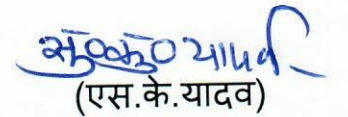 सु०कु० यादव
(एस.के.यादव)